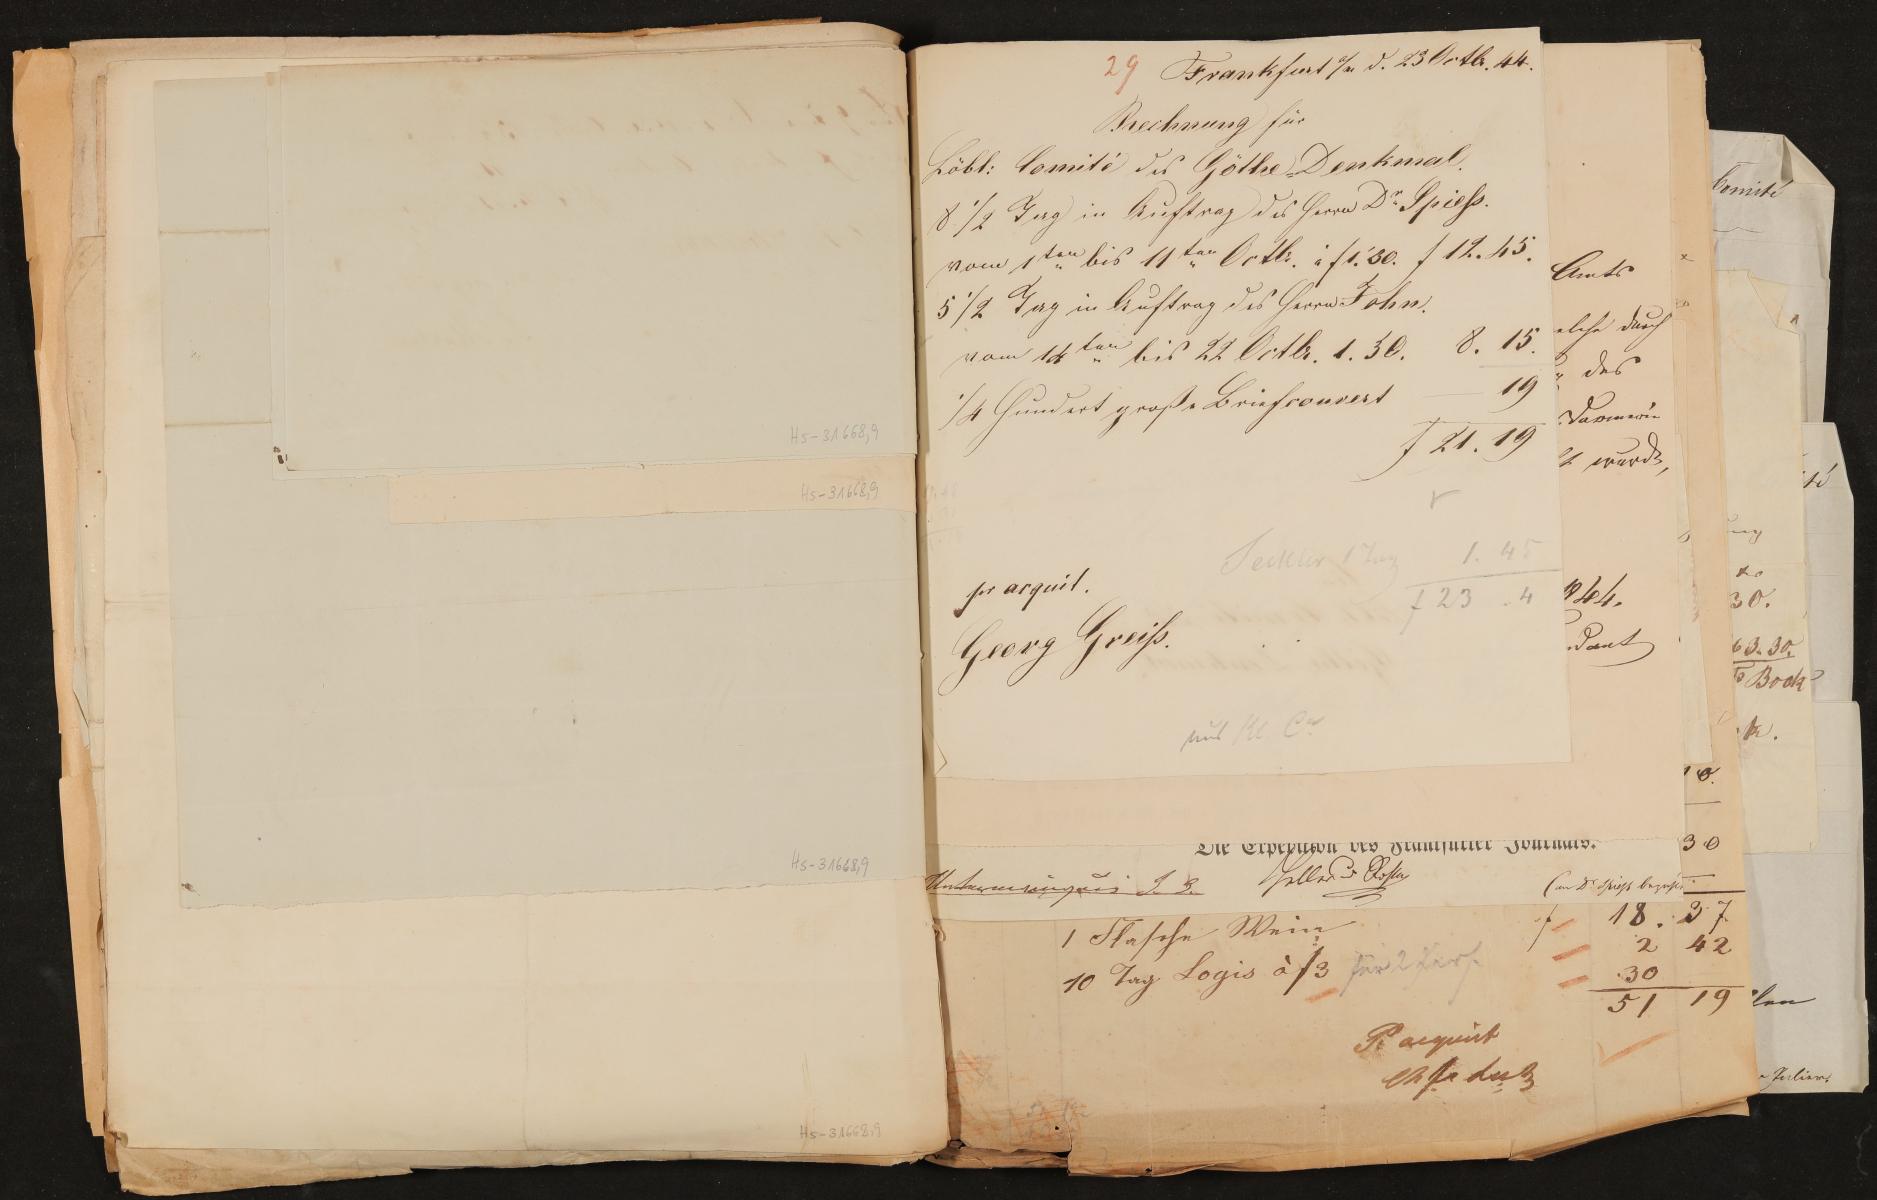 Hs-31668,9
Hs-31668,9
Hs-31668,9
Hs-31668,9
29 Frankfurt a/m d. 23 Octb. 44.
Rechnung für
Löbl: Comité des Göthe=Denkmal.
8 1/2 Tag in Auftrag des Herrn Dr. Spiess.
vom 1ten bis 11ten Octb. à f 1.30. f 12.45.
5 1/2 Tag in Auftrag des Herrn John.
vom 14ten bis 22 Octb. 1.30. 8. 15.
1/4 Hundert große Briefcouvert — 19
f 21.19
1 Tag 1.45
f 23.4
pr acquit.
Georg Greiß.
aus Kl. Ca
Amts
elche durch
des
wurde,
1844.
dant
Die Expedition des Frankfurter Journals.
1 Flasche Wein
10 Tag Logis à f 3 für 2 Pers.
f 18.37
2 42
30
51 19
Pr acquit
Comité
30.
63.30.
Book
30